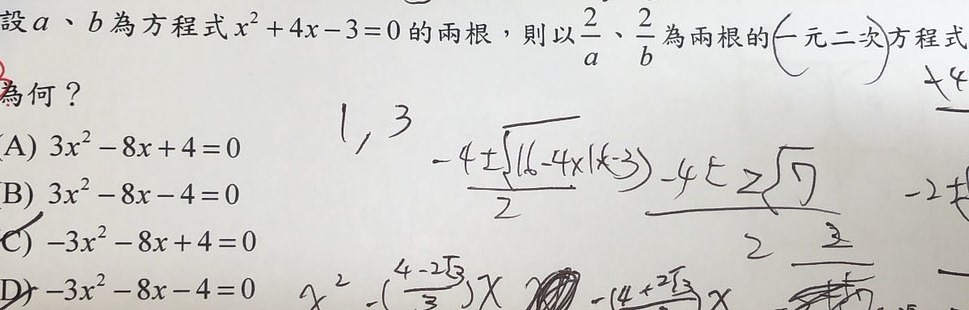 設a、b為方程式x²+4x-3=0的兩根，則以2/a、2/b為兩根的一元二次方程式
為何？
(A) 3x²-8x+4=0
(B) 3x²-8x-4=0
(C) -3x²-8x+4=0
(D) -3x²-8x-4=0
1, 3
+4
(-4±√(16-4×1×-3))/2
(-4±2√7)/2
-2±
x² -((4-2√3)/3)x
-(4+2√3)x